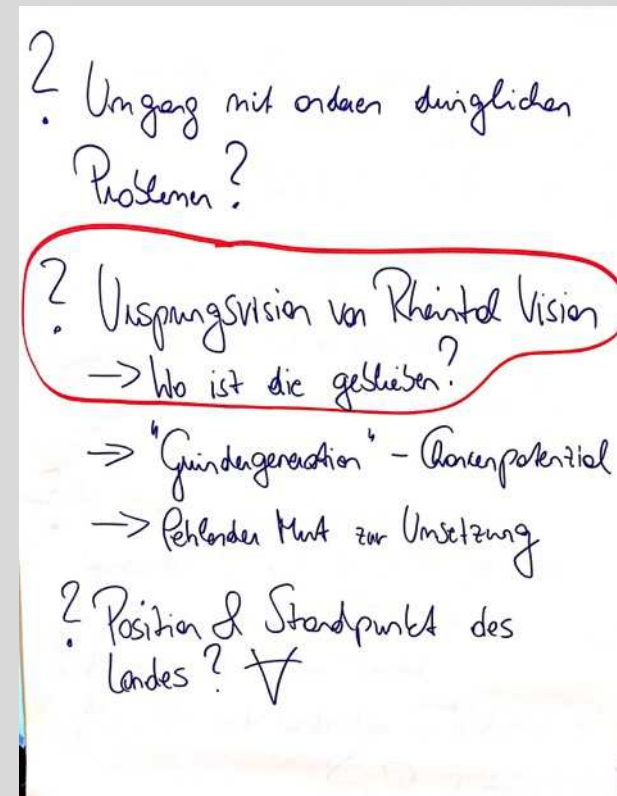 ? Umgang mit anderen dringlichen
Problemen?
? Ursprungsvision von Rheintal Vision
→ Wo ist die geblieben?
→ "Gründergeneration" - Chancenpotenzial
→ Fehlender Mut zur Umsetzung
? Position & Standpunkt des
Landes?